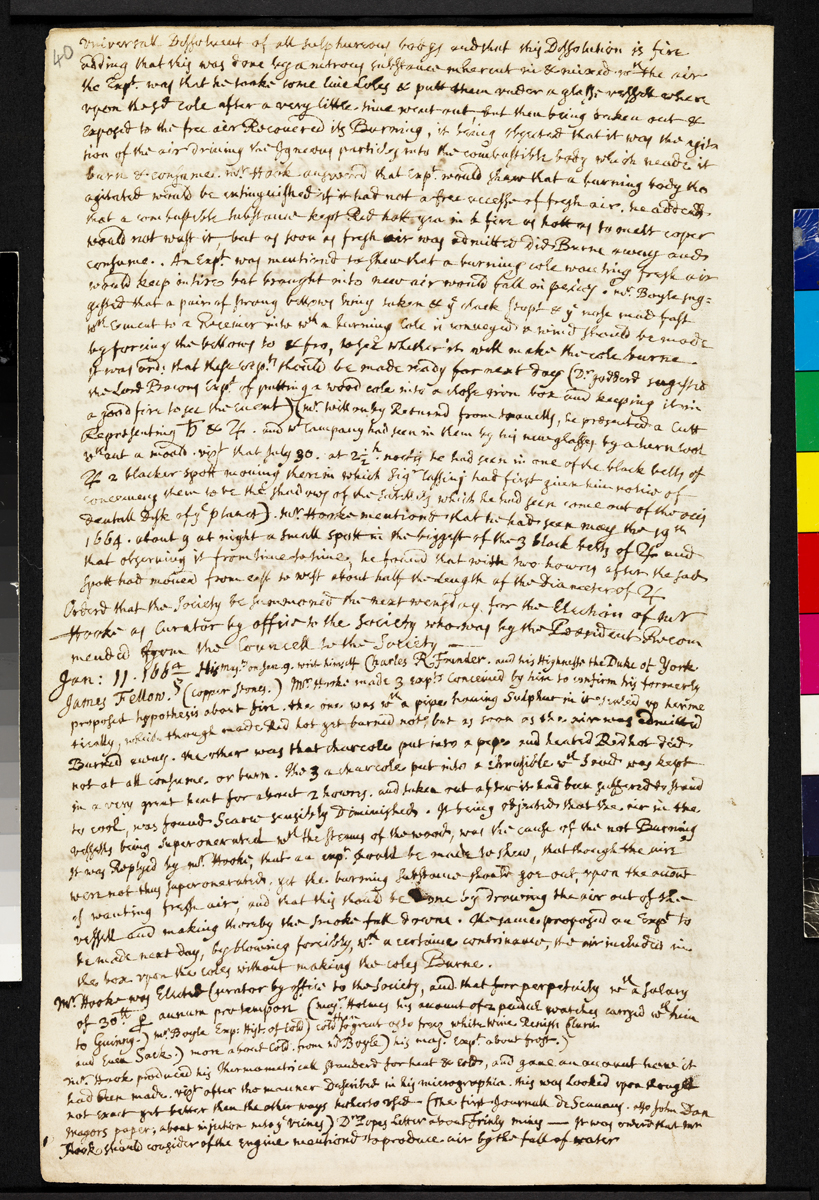 40
universall Dissolvent of all sulphureous bodys and that this Dissolution is fire
adding that this was done by a nitrous substance inherent in & mixed wth the air
the Expt. was that he tooke some live Coles & putt them under a glasse vessell where
upon the sd cole after a very little time went out, but then being taken out &
Exposed to the free air Recovered its Burning, it being objected that it was the agita
tion of the air driving the Igneous particles into the combustible body which made it
burn & consume. mr. Hook answered that Expt. would shew that a burning body tho
agitated would be extinguished if it had not a free accesse of fresh air. he added
that a combustible substance kept Red hott, yea in a fire as hott as to melt coper
would not wast it, but as soon as fresh air was admitted did Burne away and
consume.. An Expt was mentiond to shew that a burning cole wanting fresh air
would keep intire but brought into new air would fall in peices. mr. Boyle sug=
gested that a pair of strong bellows being taken & ye clack stopt & ye nose made fast
wth Cement to a Receiver into wch a burning Cole is conveyed a wind should be made
by forcing the bellows to & fro, to see whether it will make the cole burne
It was ord: that these expts should be made ready for next day (Dr. Godderd sugested
the Lord Bacons Expt. of putting a wood cole into a close iron box and keeping it in
a good fire to see the Euent) (mr. Willouby Returnd from travells, he presented a Cutt
Representing ♄ & ♃. and wt Campany had seen in them by his new glasses by a turn tool
wthout a mould. vizt that July 30. at 2½h noctis he had seen in one of the black belts of
♃ 2 blacker spotts moving therein which Sigr Cassini had first given him notice of
conceiving them to be the shadows of the satellits which he had seen come out of the occi
dentall Disk of ye planet). mr. Hooke mentiond that he had seen may the 9th
1664. about 9 at night a small spott in the biggest of the 3 black belts of ♃ and
that observing it from time to time, he found that within two howers after the said
spott had moved from east to west about half the Length of the Diameter of ♃
Orderd that the Society be summoned the next wensday for the Election of mr
Hooke as Curator by office to the Society who was by the President Recom
mended from the Councell to the Society
Jan: 11. 1664 His maj. on Jan 9. writt himself Charles R. Founder. and his Highnesse the Duke of York
James Fellow. (copper stones.) Mr. Hooke made 3 expts Conceived by him to confirm his formerly
proposed hypothesis about fire. the one was wth a pipe having Sulphur in it sealed up herme
tically, which though made Red hot yet burned not but as soon as the air was admitted
Burned away. the other was that charcole put into a pipe and heated Red hot did
not at all consume or burn. the 3 a charcole put into a Crusible wth sand was kept
in a very great heat for about 2 howers. and taken out after it had been suffered to stand
to cool, was found scarce sensibly Diminished. It being objected that the air in the
vessells being superonerated wth the steams of the wood, was the cause of the not Burning
It was Replyed by mr. Hooke, that an expt. should be made to shew, that though the aire
were not thus superonerated, yet the burning substance should goe out, upon the account
of wanting fresh aire, and that this should be done by drawing the air out of the
vessell and making thereby the smoke fall downe. He same proposed an Expt to
be made next day, by blowing forcibly, wth a certaine contrivance, the air included in
the box upon the coles without making the coles Burne.
Mr. Hooke was Elected Curator by office to the Society, and that for perpetuity wth a salary
of 30lb p annum pro tempore (majr. Holmes his account of 2 pendul watches carryed wth him
to Guiny.) mr. Boyle Exp: Hist. of Cold) cold so great as to freez white wine Renish Claret
and Even Sack.) more about Cold. from mr Boyle) his maj. Expt about frost.)
mr. Hook produced his thermometricall standerd for heat & cold, and gave an account how it
had been made. vizt after the manner Described in his micrographia. this was Looked upon though
not exact yet better then the other ways hitherto used – (The first Journall de Scavans. also John Dan
Magors paper, about injection into ye veines) Dr Popes Letter about Friuly mines — It was orderd that mr
Hook should consider of the engine mentioned to produce air by the fall of water